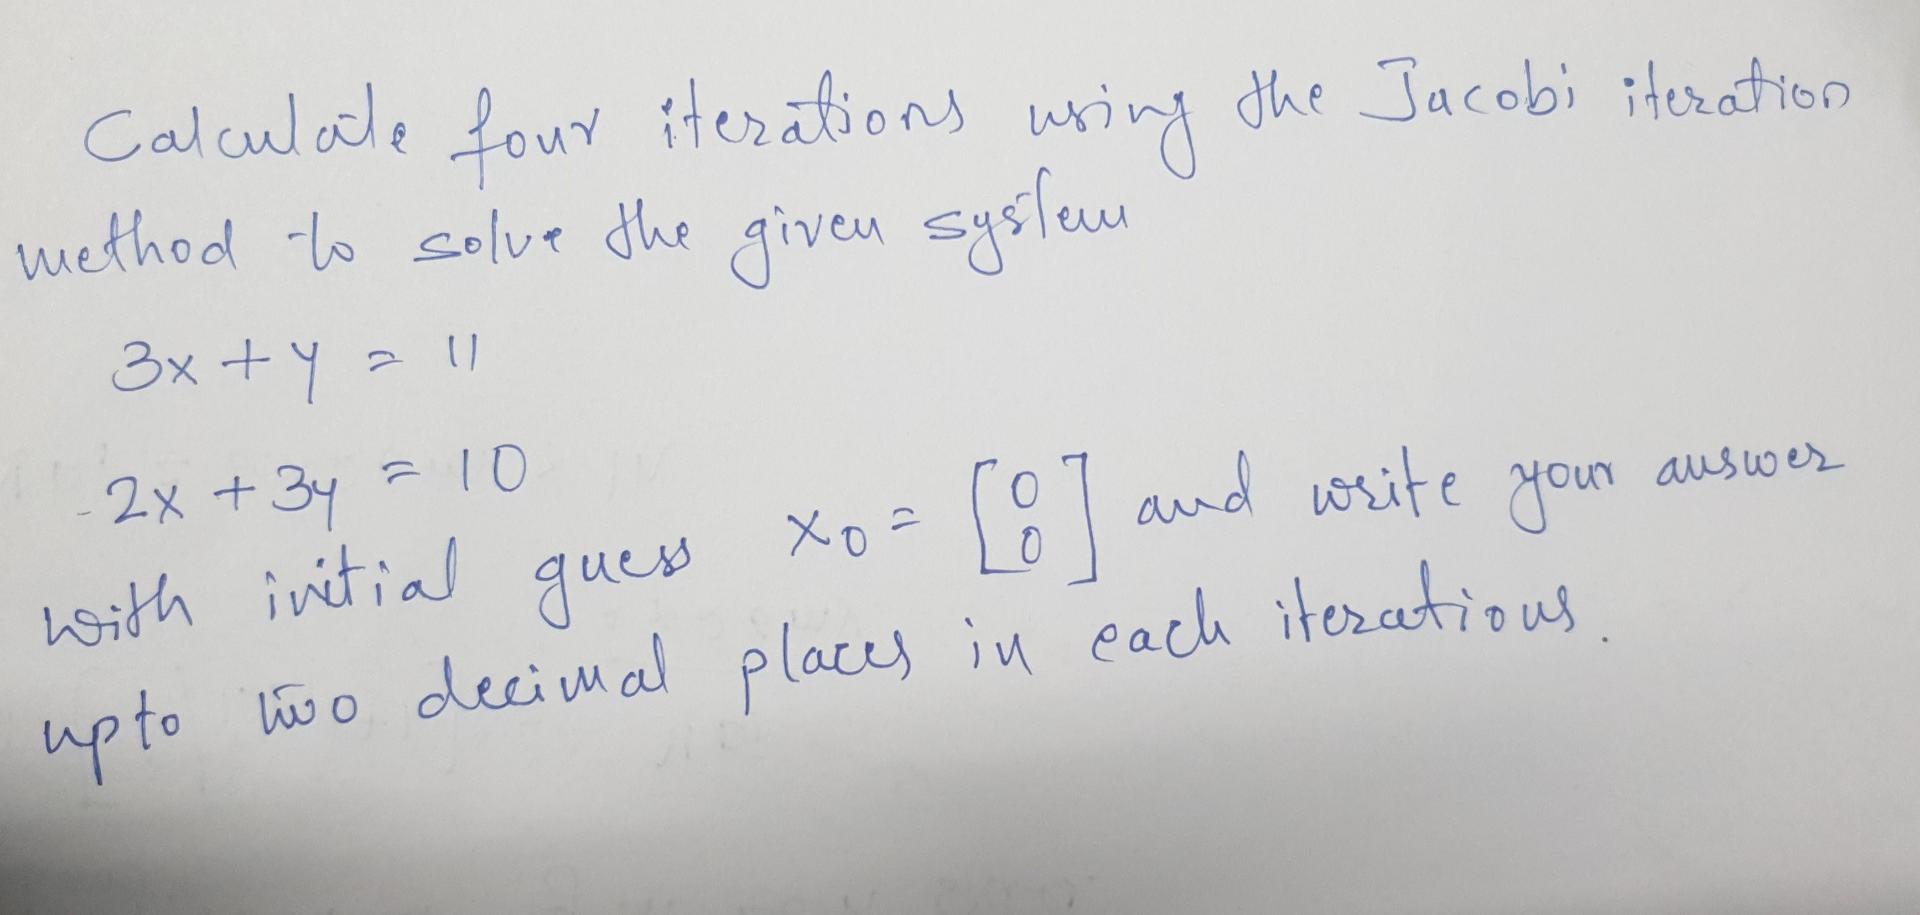 Calculate four iterations using the Jacobi iteration
method to solve the given system
3x + y = 11
2x + 3y = 10
with initial guess x₀ = [0 0] and write your answer
upto two decimal places in each iterations.